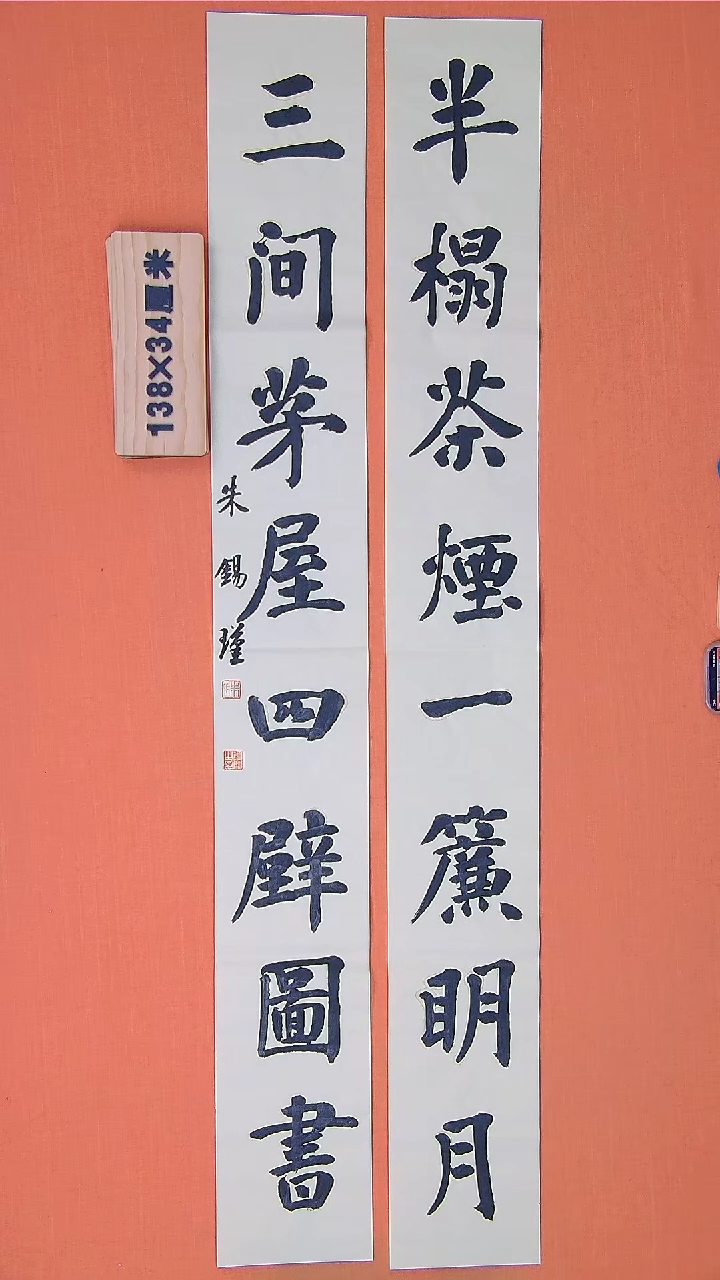 半榻茶煙一簾明月
三间茅屋四壁圖書
朱錫瑾
138×34厘米